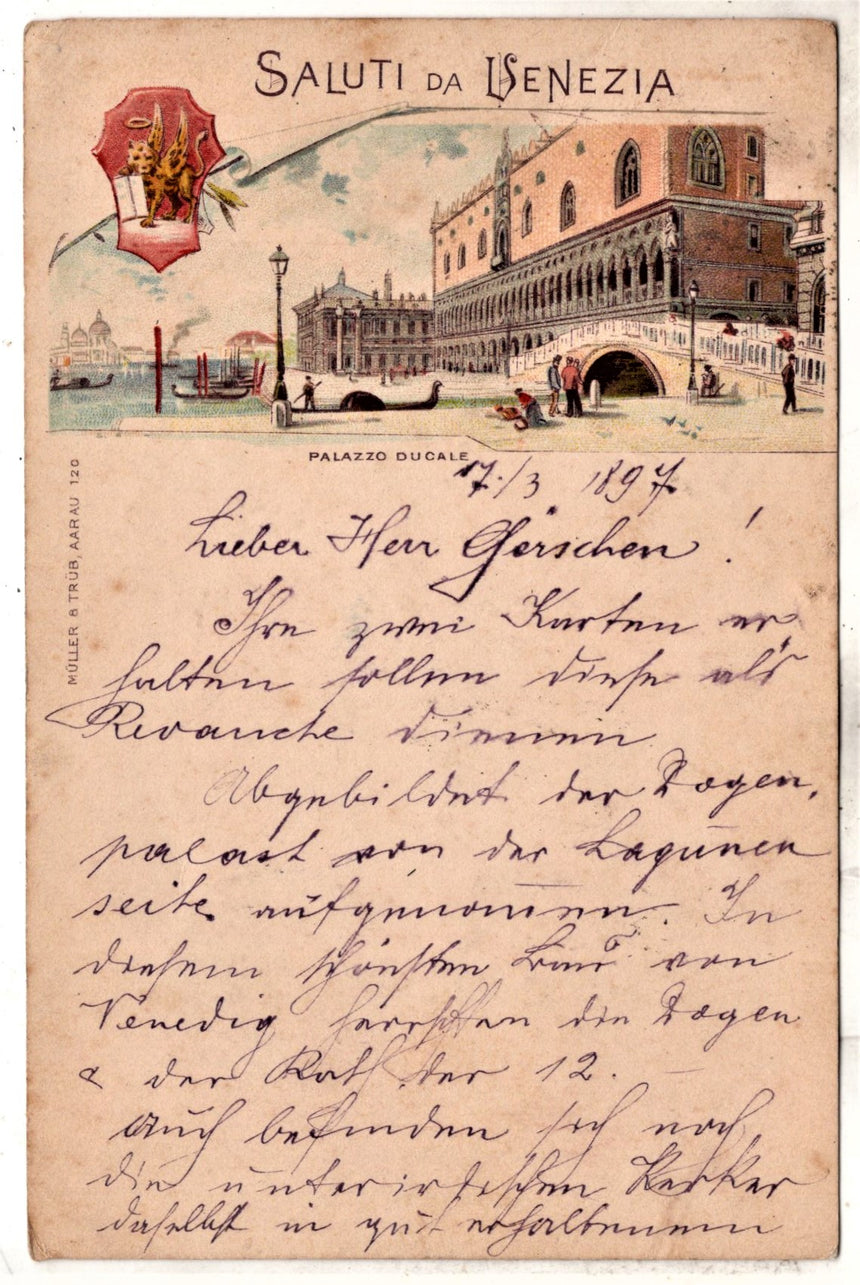 SALUTI DA VENEZIA
PALAZZO DUCALE
MÜLLER & TRÜB, AARAU 120
17./3 1897
Lieber Herr Görschen!
Ihre zwei Karten er
halten sollen diese als
Revanche dienen
Abgebildet der Dogen,
palast von der Lagunen
seite aufgenommen. In
diesem schönsten Bau von
Venedig herrschten die Dogen
& der Rath der 12.
Auch befinden sich noch
die unterirdischen Kerker
daselbst in gut erhaltenem